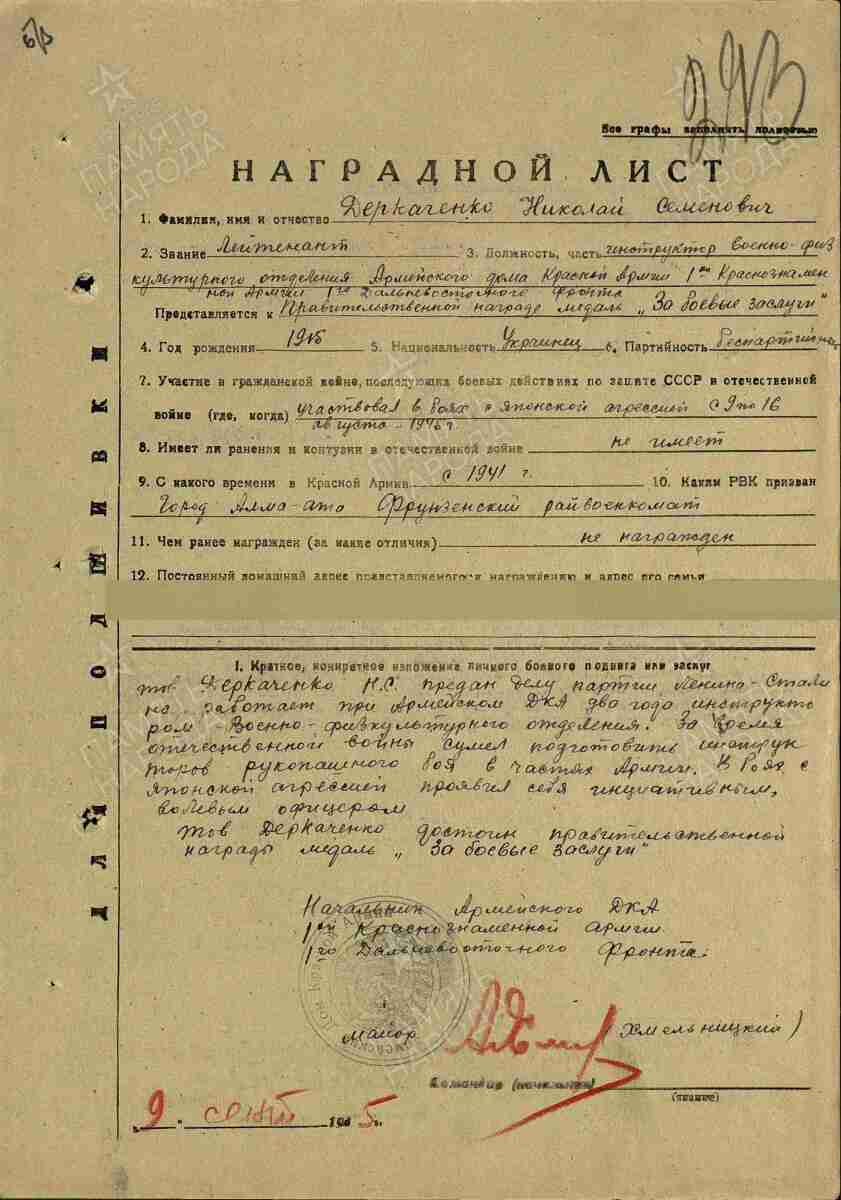 б/п
Все графы заполнять полностью
НАГРАДНОЙ ЛИСТ
1. Фамилия, имя и отчество Деркаченко Николай Семенович
2. Звание Лейтенант 3. Должность, часть инструктор военно-физ
культурного отделения Армейского дома Красной Армии 1ой Краснознамен
ной Армии 1го Дальневосточного Фронта
Представляется к Правительственной награде медаль „За боевые заслуги"
4. Год рождения 1915 5. Национальность Украинец 6. Партийность беспартийный
7. Участие в гражданской войне, последующих боевых действиях по защите СССР и отечественной
войне (где, когда) участвовал в боях с японской агрессией с 9 по 16
августа 1945 г.
8. Имеет ли ранения и контузии в отечественной войне не имеет
9. С какого времени в Красной Армии с 1941 г. 10. Каким РВК призван
Город Алма-ата Фрунзенский райвоенкомат
11. Чем ранее награжден (за какие отличия) не награжден
12. Постоянный домашний адрес представляемого к награждению и адрес его семьи
ДЛЯ ПОДШИВКИ
1. Краткое, конкретное изложение личного боевого подвига или заслуг
тов Деркаченко Н.С. предан делу партии Ленина-Стали
на работает при Армейском ДКА два года инструкто
ром Военно-физкультурного отделения. За время
отечественной войны сумел подготовить инструк
торов рукопашного боя в частях Армии. В боях с
японской агрессией проявил себя инициативным,
волевым офицером
тов Деркаченко достоин правительственной
награды медаль „За боевые заслуги"
Начальник Армейского ДКА
1ой Краснознаменной армии
1го Дальневосточного Фронта.
майор (Хмельницкий)
Командир (начальник)
(звание)
9 сент 1945 г.
ПАМЯТЬ НАРОДА